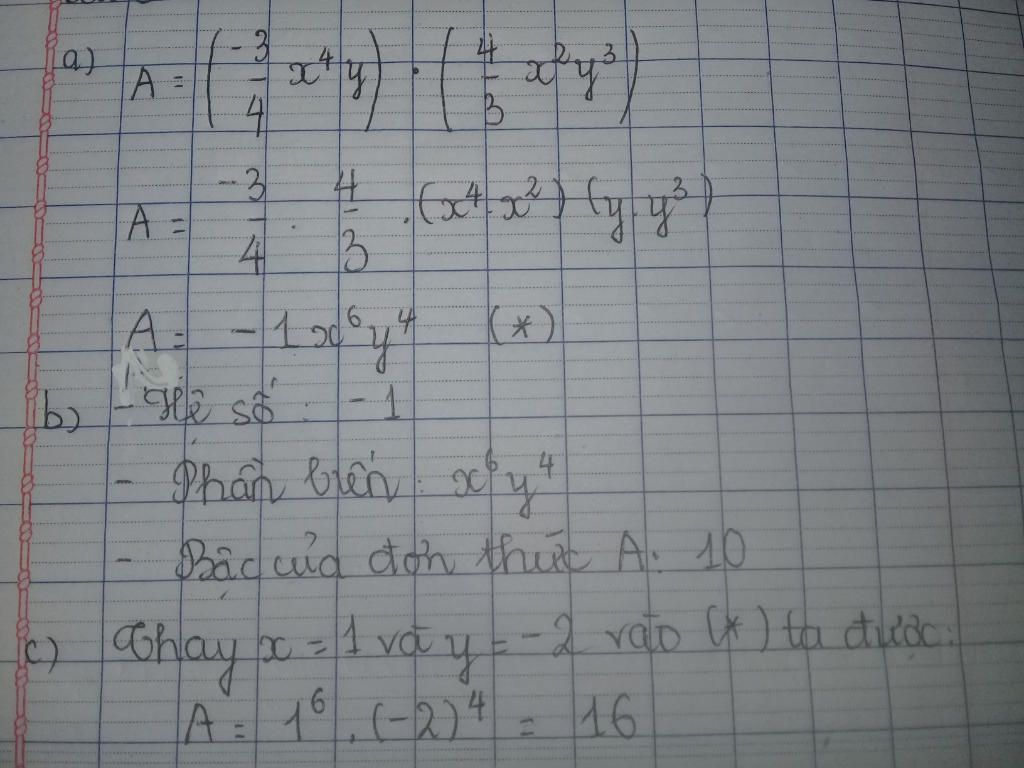 a) A = (-3/4 x⁴y) . (4/3 x²y³)
A = -3/4 . 4/3 .(x⁴.x²) (y.y³)
A = - 1x⁶y⁴ (*)
b) - Hệ số : - 1
- Phần biến : x⁶y⁴
- Bậc của đơn thức A: 10
c) Thay x = 1 và y = -2 vào (*) ta được:
A = 1⁶ . (-2)⁴ = 16